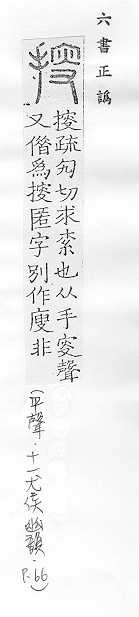 六書正譌
𢯱
𢯱疏勼切求索也从手叜聲
又僭爲𢯱匿字別作廋非
(平聲·十一尤侯幽韻·P.66)